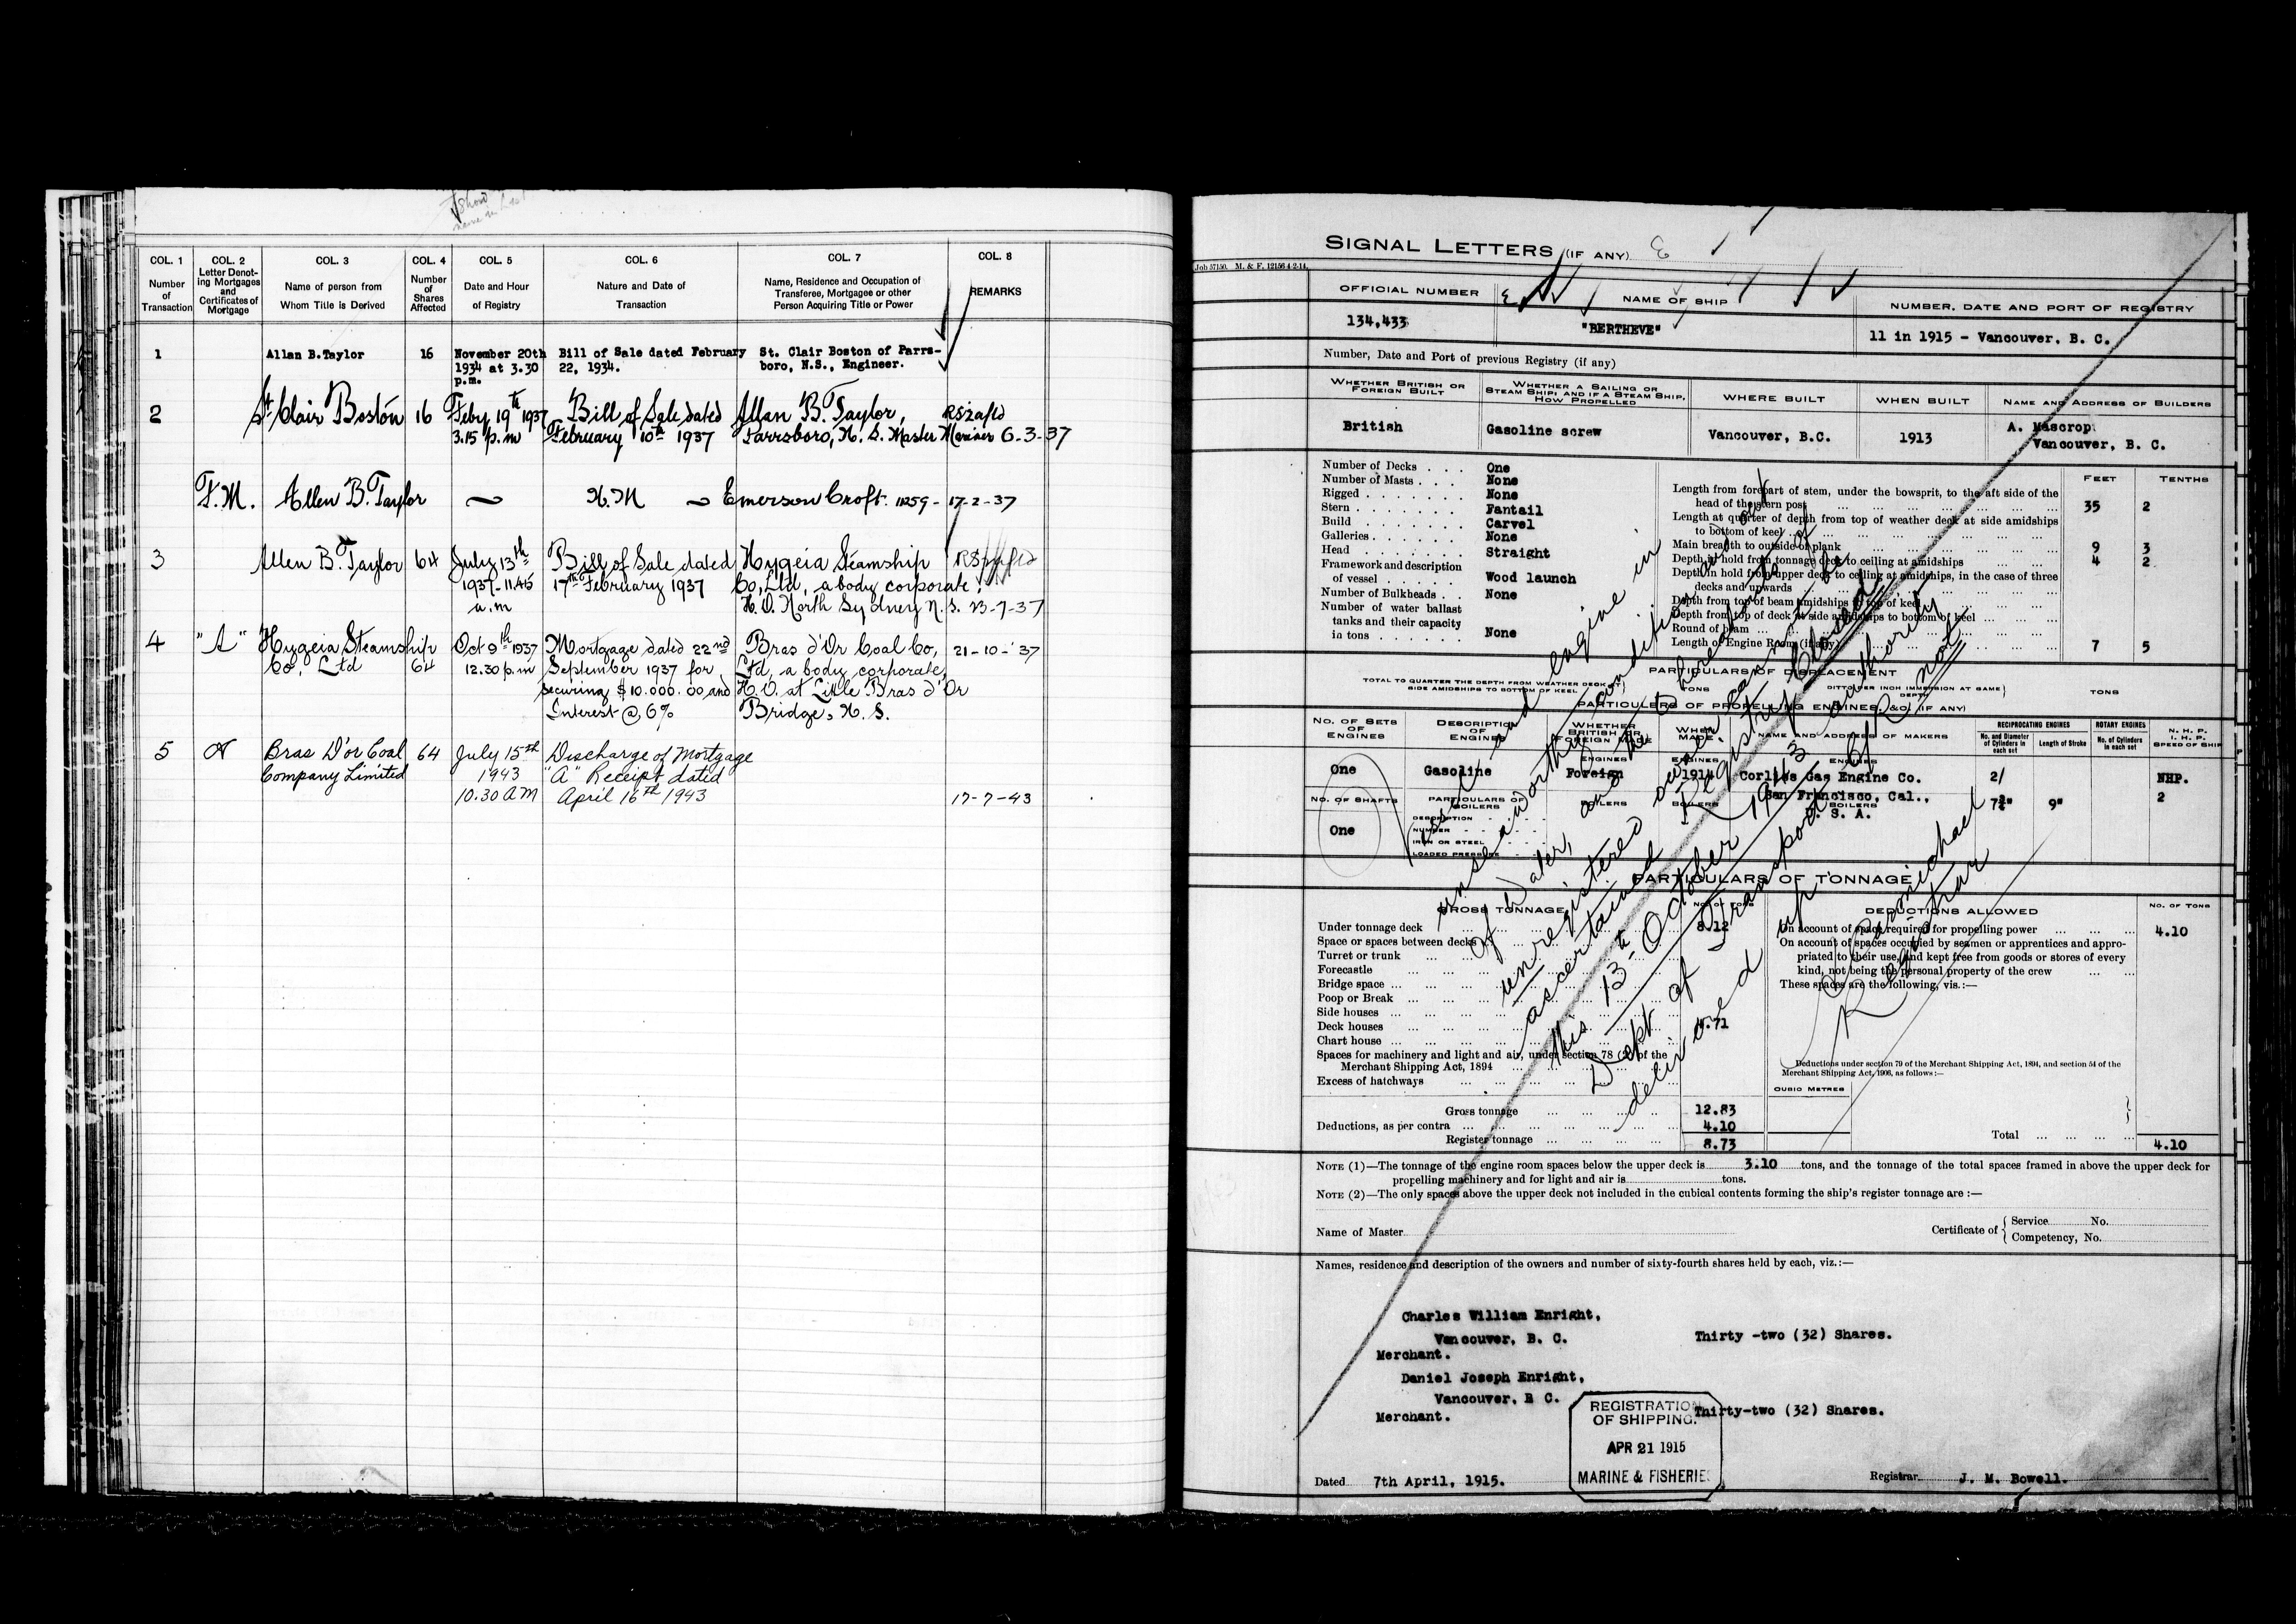 COL. 1
Number
of
Transaction
COL. 2
Letter Denot-
ing Mortgages
and
Certificates of
Mortgage
COL. 3
Name of person from
Whom Title is Derived
COL. 4
Number
of
Shares
Affected
COL. 5
Date and Hour
of Registry
COL. 6
Nature and Date of
Transaction
COL. 7
Name, Residence and Occupation of
Transferee, Mortgagee or other
Person Acquiring Title or Power
COL. 8
REMARKS
1 Allan B.Taylor 16 November 20th Bill of Sale dated February St. Clair Boston of Parrs-
1934 at 3.30 22, 1934. boro, N.S., Engineer.
p.m.
2 St. Clair Boston 16 Feby 19th 1937 Bill of Sale dated Allan B. Taylor,
3.15 p.m February 10th 1937 Parrsboro, N. S. Master Mariner 6-3-37
F.M. Allen B. Taylor N.M Emerson Croft. 11259- 17-2-37
3 Allen B. Taylor 64 July 13th Bill of Sale dated Hygeia Steamship
1937-11.45 17th February 1937 Co, Ltd, a body corporate,
a.m H.O. North Sydney N.S. 23-7-37
4 "A" Hygeia Steamship Oct 9th 1937 Mortgage dated 22nd Bras d'Or Coal Co, 21-10-'37
Co, Ltd 64 12.30 p.m September 1937 for Ltd, a body corporate,
securing $10.000.00 and H.O. at Little Bras d'Or
Interest @ 6% Bridge, N. S.
5 A Bras D'or Coal 64 July 15th Discharge of Mortgage
Company Limited 1943 "A" Receipt dated
10.30 AM April 16th 1943 17-7-43
SIGNAL LETTERS (IF ANY)
Job 57150. M. & F. 12156 4-2-14.
OFFICIAL NUMBER NAME OF SHIP NUMBER, DATE AND PORT OF REGISTRY
134,433 "BERTHEVE" 11 in 1915 - Vancouver, B. C.
Number, Date and Port of previous Registry (if any)
WHETHER BRITISH OR
FOREIGN BUILT
WHETHER A SAILING OR
STEAM SHIP; AND IF A STEAM SHIP,
HOW PROPELLED
WHERE BUILT
WHEN BUILT
NAME AND ADDRESS OF BUILDERS
British Gasoline screw Vancouver, B.C. 1913 A. Mascrop
Vancouver, B. C.
Number of Decks . . . One
Number of Masts . . . None
Rigged . . . . . . . None
Stern . . . . . . . Fantail
Build . . . . . . . Carvel
Galleries . . . . . None
Head . . . . . . . Straight
Framework and description
of vessel . . . . . . Wood launch
Number of Bulkheads . . None
Number of water ballast
tanks and their capacity
in tons . . . . . . None
FEET TENTHS
Length from forepart of stem, under the bowsprit, to the aft side of the
head of the stern post 35 2
Length at quarter of depth from top of weather deck at side amidships
to bottom of keel
Main breadth to outside of plank 9 3
Depth in hold from tonnage deck to ceiling at amidships 4 2
Depth in hold from upper deck to ceiling at amidships, in the case of three
decks and upwards
Depth from top of beam amidships to top of keel
Depth from top of deck at side amidships to bottom of keel
Round of beam
Length of Engine Room (if any) 7 5
PARTICULARS OF DISPLACEMENT
TOTAL TO QUARTER THE DEPTH FROM WEATHER DECK AT
SIDE AMIDSHIPS TO BOTTOM OF KEEL
TONS
DITTO PER INCH IMMERSION AT SAME
DEPTH
TONS
PARTICULARS OF PROPELLING ENGINES, &C. (IF ANY)
NO. OF SETS
OF
ENGINES
DESCRIPTION
OF
ENGINES
WHETHER
BRITISH OR
FOREIGN MADE
WHEN
MADE
NAME AND ADDRESS OF MAKERS
RECIPROCATING ENGINES
No. and Diameter
of Cylinders in
each set
Length of Stroke
ROTARY ENGINES
No. of Cylinders
in each set
N. H. P.
I. H. P.
SPEED OF SHIP
ENGINES ENGINES ENGINES
One Gasoline Foreign 1914 Corliss Gas Engine Co. 2/ NHP.
San Francisco, Cal., 7¾" 9" 2
U. S. A.
NO. OF SHAFTS
PARTICULARS OF
BOILERS
BOILERS BOILERS BOILERS
One
DESCRIPTION
NUMBER
IRON OR STEEL
LOADED PRESSURE
Vessel and engine in
unseaworthy condition and out
of Water, and the whereabouts of
unregistered owner cannot be
ascertained. Registry Closed
this 13th October 1943
Dept of Transport authority
C of R not
delivered up
Carmichael
Registrar
PARTICULARS OF TONNAGE
GROSS TONNAGE NO. OF TONS
Under tonnage deck 8.12
Space or spaces between decks
Turret or trunk
Forecastle
Bridge space
Poop or Break
Side houses
Deck houses 4.71
Chart house
Spaces for machinery and light and air, under section 78 (2) of the
Merchant Shipping Act, 1894
Excess of hatchways
Gross tonnage 12.83
Deductions, as per contra 4.10
Register tonnage 8.73
DEDUCTIONS ALLOWED NO. OF TONS
On account of space required for propelling power 4.10
On account of spaces occupied by seamen or apprentices and appro-
priated to their use, and kept free from goods or stores of every
kind, not being the personal property of the crew
These spaces are the following, vis.:—
Deductions under section 79 of the Merchant Shipping Act, 1894, and section 54 of the
Merchant Shipping Act, 1906, as follows:—
CUBIC METRES
Total 4.10
NOTE (1)—The tonnage of the engine room spaces below the upper deck is 3.10 tons, and the tonnage of the total spaces framed in above the upper deck for
propelling machinery and for light and air is tons.
NOTE (2)—The only spaces above the upper deck not included in the cubical contents forming the ship's register tonnage are :—
Name of Master
Certificate of { Service No.
Competency, No.
Names, residence and description of the owners and number of sixty-fourth shares held by each, viz.:—
Charles William Enright,
Vancouver, B. C. Thirty -two (32) Shares.
Merchant.
Daniel Joseph Enright,
Vancouver, B C.
Merchant. Thirty-two (32) Shares.
REGISTRATION
OF SHIPPING.
APR 21 1915
MARINE & FISHERIES
Dated 7th April, 1915.
Registrar J. M. Bowell.